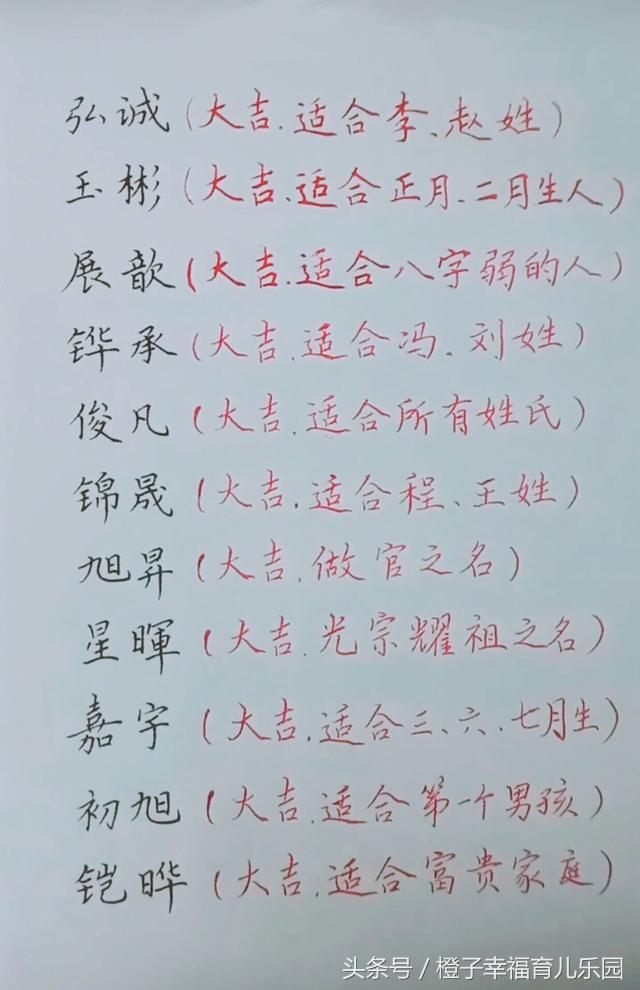 弘诚(大吉.适合李、赵姓)
玉彬(大吉.适合正月.二月生人)
展歆(大吉.适合八字弱的人)
铧承(大吉.适合冯.刘姓)
俊凡(大吉.适合所有姓氏)
锦晟(大吉.适合程、王姓)
旭昇(大吉.做官之名)
星暉(大吉.光宗耀祖之名)
嘉宇(大吉.适合三、六.七月生)
初旭(大吉.适合第一个男孩)
铠晔(大吉.适合富贵家庭)
头条号/橙子幸福育儿乐园